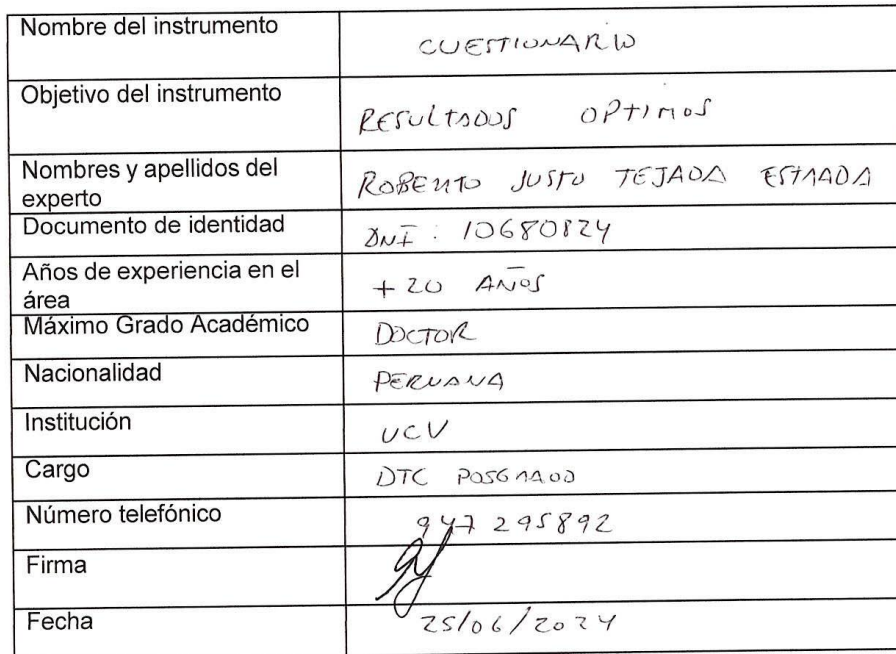 Nombre del instrumento
CUESTIONARIO
Objetivo del instrumento
RESULTADOS OPTIMOS
Nombres y apellidos del
experto
ROBERTO JUSTO TEJADA ESTRADA
Documento de identidad
DNI: 10680824
Años de experiencia en el
área
+20 AÑOS
Máximo Grado Académico
DOCTOR
Nacionalidad
PERUANA
Institución
UCV
Cargo
DTC POSGRADO
Número telefónico
947 295892
Firma
Fecha
25/06/2024